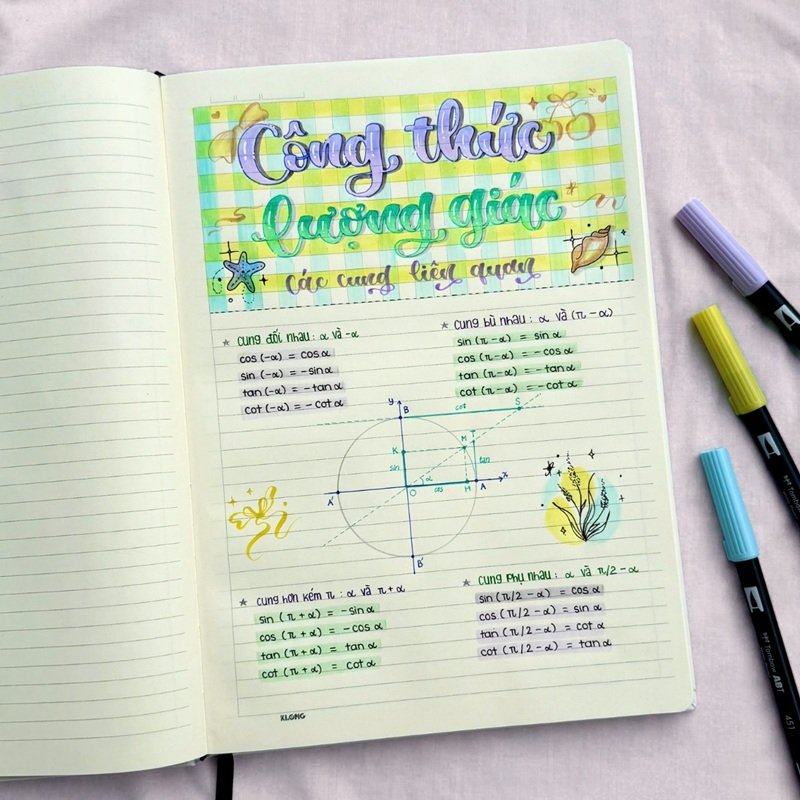 Công thức
lượng giác
các cung liên quan
★ cung đối nhau : α và -α
cos (-α) = cos α
sin (-α) = -sin α
tan (-α) = -tan α
cot (-α) = -cot α
★ cung bù nhau : α và (π - α)
sin (π - α) = sin α
cos (π - α) = - cos α
tan (π - α) = - tan α
cot (π - α) = - cot α
y
B
cot
S
K
M
T
sin
tan
α
A'
O
cos
H
A
x
B'
★ cung hơn kém π : α và π + α
sin (π + α) = -sin α
cos (π + α) = -cos α
tan (π + α) = tan α
cot (π + α) = cot α
★ cung phụ nhau : α và π/2 - α
sin (π/2 - α) = cos α
cos (π/2 - α) = sin α
tan (π/2 - α) = cot α
cot (π/2 - α) = tan α
KLONG
Tombow ABT
Tombow ABT
451